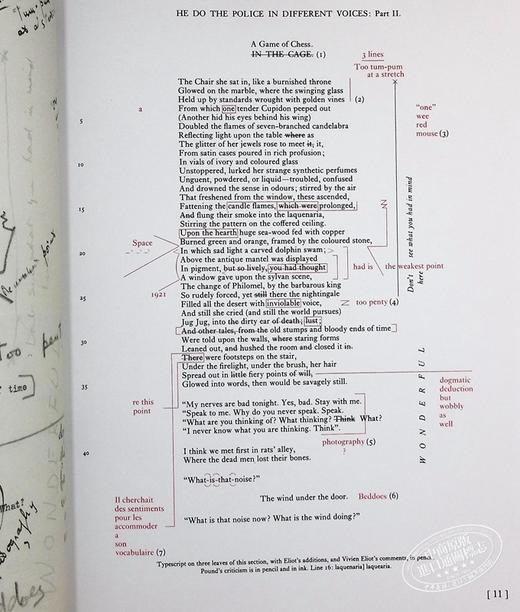 HE DO THE POLICE IN DIFFERENT VOICES: Part II.
A Game of Chess.
IN THE CAGE. (1)
3 lines
Too tum-pum
at a stretch
The Chair she sat in, like a burnished throne
Glowed on the marble, where the swinging glass
Held up by standards wrought with golden vines (2)
a From which one tender Cupidon peeped out
"one"
wee
red
mouse (3)
5 (Another hid his eyes behind his wing)
Doubled the flames of seven-branched candelabra
Reflecting light upon the table where as
The glitter of her jewels rose to meet it; it,
From satin cases poured in rich profusion;
10 In vials of ivory and coloured glass
Unstoppered, lurked her strange synthetic perfumes
Unguent, powdered, or liquid—troubled, confused
And drowned the sense in odours; stirred by the air
That freshened from the window, these ascended,
15 Fattening the candle flames, which were prolonged,
And flung their smoke into the laquenaria,
Stirring the pattern on the coffered ceiling.
Upon the hearth huge sea-wood fed with copper
Space Burned green and orange, framed by the coloured stone,
20 In which sad light a carved dolphin swam;
Above the antique mantel was displayed
In pigment, but so lively, you had thought had is the weakest point
A window gave upon the sylvan scene,
1921 The change of Philomel, by the barbarous king
25 So rudely forced, yet still there the nightingale
Filled all the desert with inviolable voice, too penty (4)
Don't see what you had in mind
here
And still she cried (and still the world pursues)
Jug Jug, into the dirty ear of death; lust;
And other tales, from the old stumps and bloody ends of time
30 Were told upon the walls, where staring forms
Leaned out, and hushed the room and closed it in.
There were footsteps on the stair,
Under the firelight, under the brush, her hair
Spread out in little fiery points of will,
35 Glowed into words, then would be savagely still.
dogmatic
deduction
but
wobbly
as
well
WONDERFUL
re this
point
"My nerves are bad tonight. Yes, bad. Stay with me.
"Speak to me. Why do you never speak. Speak.
"What are you thinking of? What thinking? Think What?
"I never know what you are thinking. Think".
photography (5)
?
40 I think we met first in rats' alley,
Where the dead men lost their bones.
"What-is-that-noise?"
The wind under the door. Beddoes (6)
"What is that noise now? What is the wind doing?"
Il cherchait
des sentiments
pour les
accommoder
a
son
vocabulaire (7)
Typescript on three leaves of this section, with Eliot's additions, and Vivien Eliot's comments, in pencil.
Pound's criticism is in pencil and in ink. Line 16: laquenaria] laquearia.
[11]